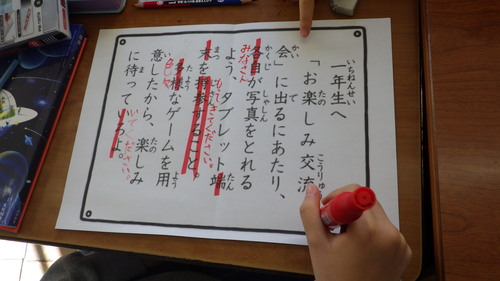 いちねんせい
一年生へ
たの こうりゅ
「お楽しみ交流
かい で
会」に出るにあたり、
かくじ しゃしん
各自が写真をとれる
みなさん
たん
よう、タブレット端
まつ
末を持参すること。
もってきてください。
たよう よう
多様なゲームを用
い たの
意したから、楽しみ
ま
に待っていろよ。
いてください。